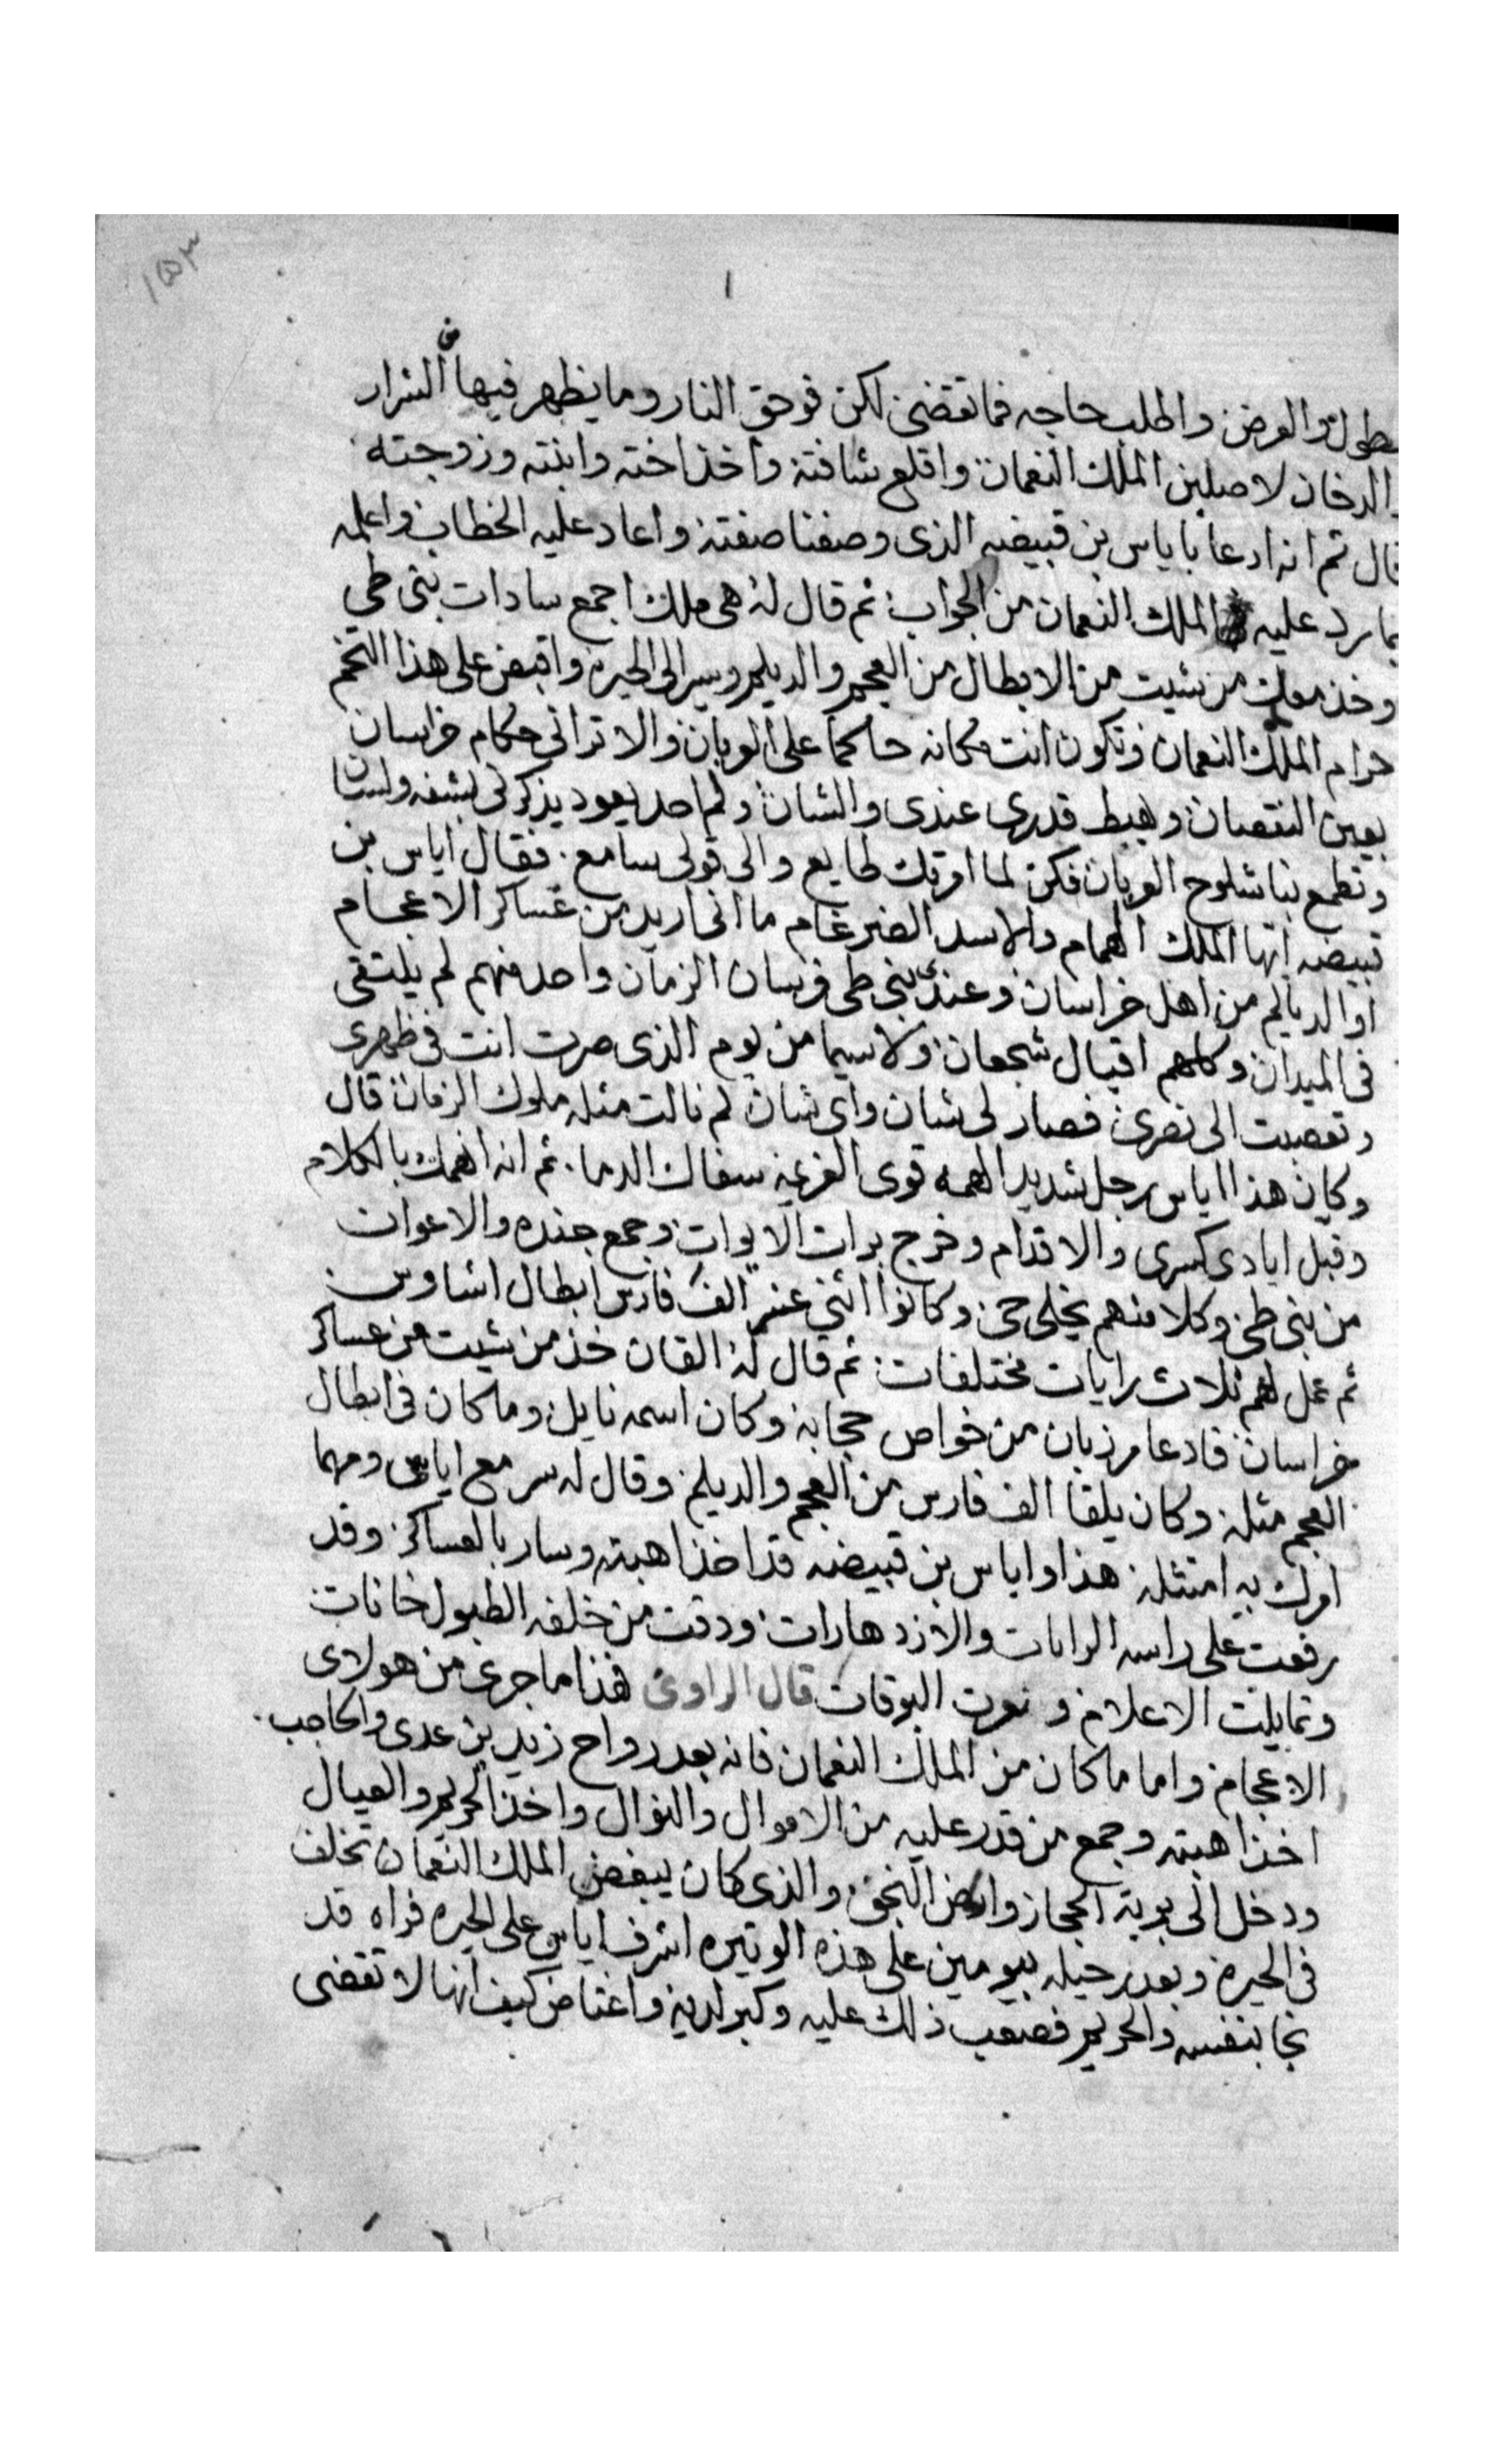 ١٥٣
١
بطول والعرض والطلب حاجه فما تقضى لكن فوحق النار وما يظهر فيها من الشرار
والدخان لاصلبن الملك النعمان واقلع شافته واخذ اخته وابنته وزوجته
قال ثم انه ادعا باياس بن قبيضه الذى وصفنا صفته واعاد عليه الخطاب واعلمه
بما رد عليه الملك النعمان من الجواب ثم قال له هى ملك اجمع سادات بنى طى
وخذ معك من شيت من الابطال من العجم والديلم وسير الى الحيره واقبض على هذا التخم
حرام الملك النعمان وتكون انت مكانه حاكما على العربان والا ترانى حكام خراسان
بعين النقصان وهبط قدرى عندى والشان ولم احد يعود يذكرنى بشفه ولسان
وتطمع بنا شلوح العربان فكن لما امرتك طايع والى قولى سامع فقال اياس بن
قبيضه ايها الملك الهمام والاسد الضرغام ما انى اريد من عساكر الاعجام
او الديالم من اهل خراسان وعندى بنى طى فرسان الزمان واحد منهم لم يلتقى
فى الميدان وكلهم اقيال شجعان ولاسيما من يوم الذى صرت انت فى ظهرى
وتعصبت الى نصرى فصار لى شان واى شان لم نالت مثله ملوك الزمان قال
وكان هذا اياس رجل شديد الهمه قوى العزيمه سفاك الدما ثم انه انهمك بالكلام
وقبل ايادى كسرى والاقدام وخرج برات الايوان وجمع جنده والاعوان
من بنى طى وكلا منهم يخلى حى وكانوا اثنى عشر الف فارس ابطال اشاوس
ثم عمل لهم ثلاث رايات مختلفات ثم قال له القان خذ من شيت من عساكر
خراسان فادعا مرزبان من خواص حجابه وكان اسمه نايل وما كان فى ابطال
العجم مثله وكان يلقا الف فارس من العجم والديلم وقال له سر مع اياس ومهما
امرك به امتثله هذا واياس بن قبيضه قد اخذ اهبته وسار بالعساكر وقد
رفعت على راسه الرايات والازدهارات ودقت من خلفه الطبول خانات
وتمايلت الاعلام و نعرت البوقات قال الراوى هذا ما جرى من هولاى
الاعجام واما ما كان من الملك النعمان فانه بعد رواح زيد بن عدى والحاجب
اخذ اهبته وجمع من قدر عليه من الاموال والنوال واخذ الحريم والعيال
ودخل الى برية الحجاز وارض النجف والذى كان يبغض الملك النعمان تخلف
فى الحيره وبعد رحيله بيومين على هذه الوتيره اشرف اياس على الحيره فراه قد
نجا بنفسه والحريم فصعب ذلك عليه وكبر لديه واغتاض كيف انها لا تقضى